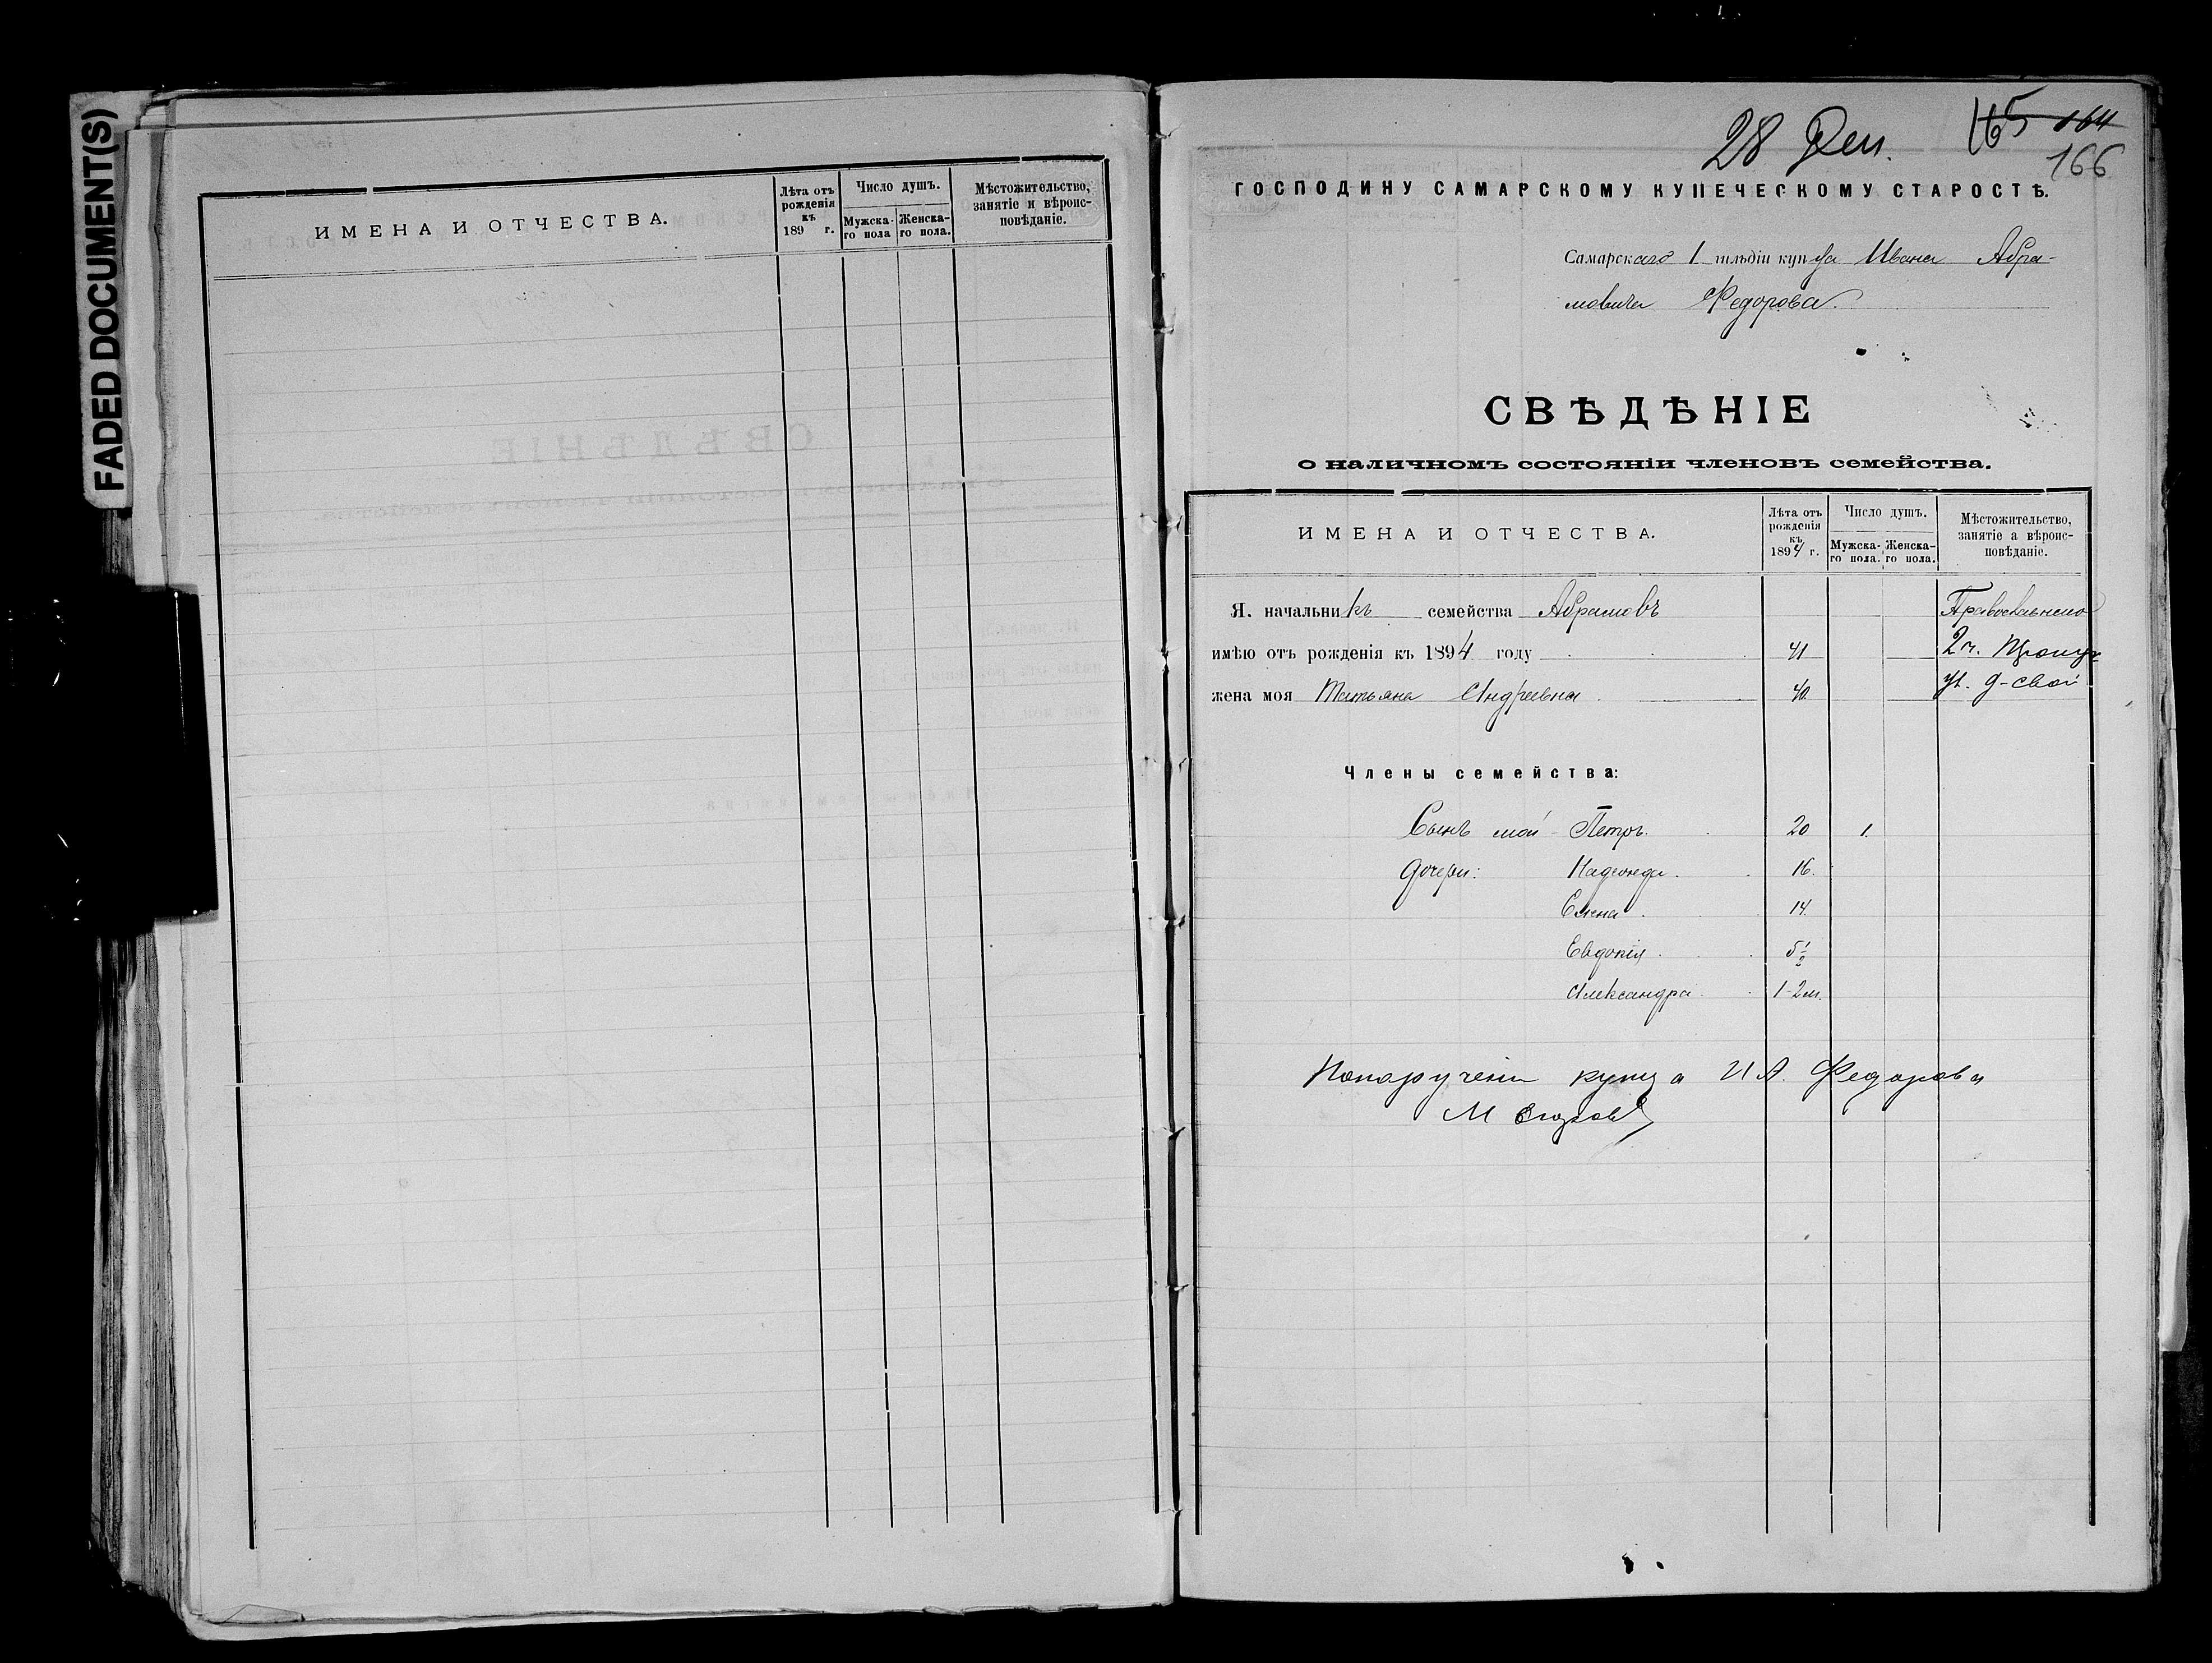 FADED DOCUMENT(S)
ИМЕНА И ОТЧЕСТВА.
Лѣта отъ
рожденія
къ
189 г.
Число душъ.
Мужска-
го пола
Женска-
го пола.
Мѣстожительство,
занятіе и вѣроис-
повѣданіе.
28 Дек.
165 164
166
ГОСПОДИНУ САМАРСКОМУ КУПЕЧЕСКОМУ СТАРОСТѢ.
Самарскаго 1 гильдіи купца Ивана Абра-
мовича Федорова.
СВѢДѢНІЕ
о наличномъ состояніи членовъ семейства.
ИМЕНА И ОТЧЕСТВА.
Лѣта отъ
рожденія
къ
1894 г.
Число душъ.
Мужска-
го пола.
Женска-
го пола.
Мѣстожительство,
занятіе а вѣроис-
повѣданіе.
Я. начальникъ семейства Абрамовъ Православнаго
имѣю отъ рожденія къ 1894 году 41 2 ч.
жена моя Татьяна Андреевна 40 д-свой
Члены семейства:
Сынъ мой - Петръ. 20 1.
Дочери: Надежда. 16.
Елена. 14.
Евдокія. 5 1/2
Александра. 1-2 м.
Попорученiи купца И А. Федорова
М